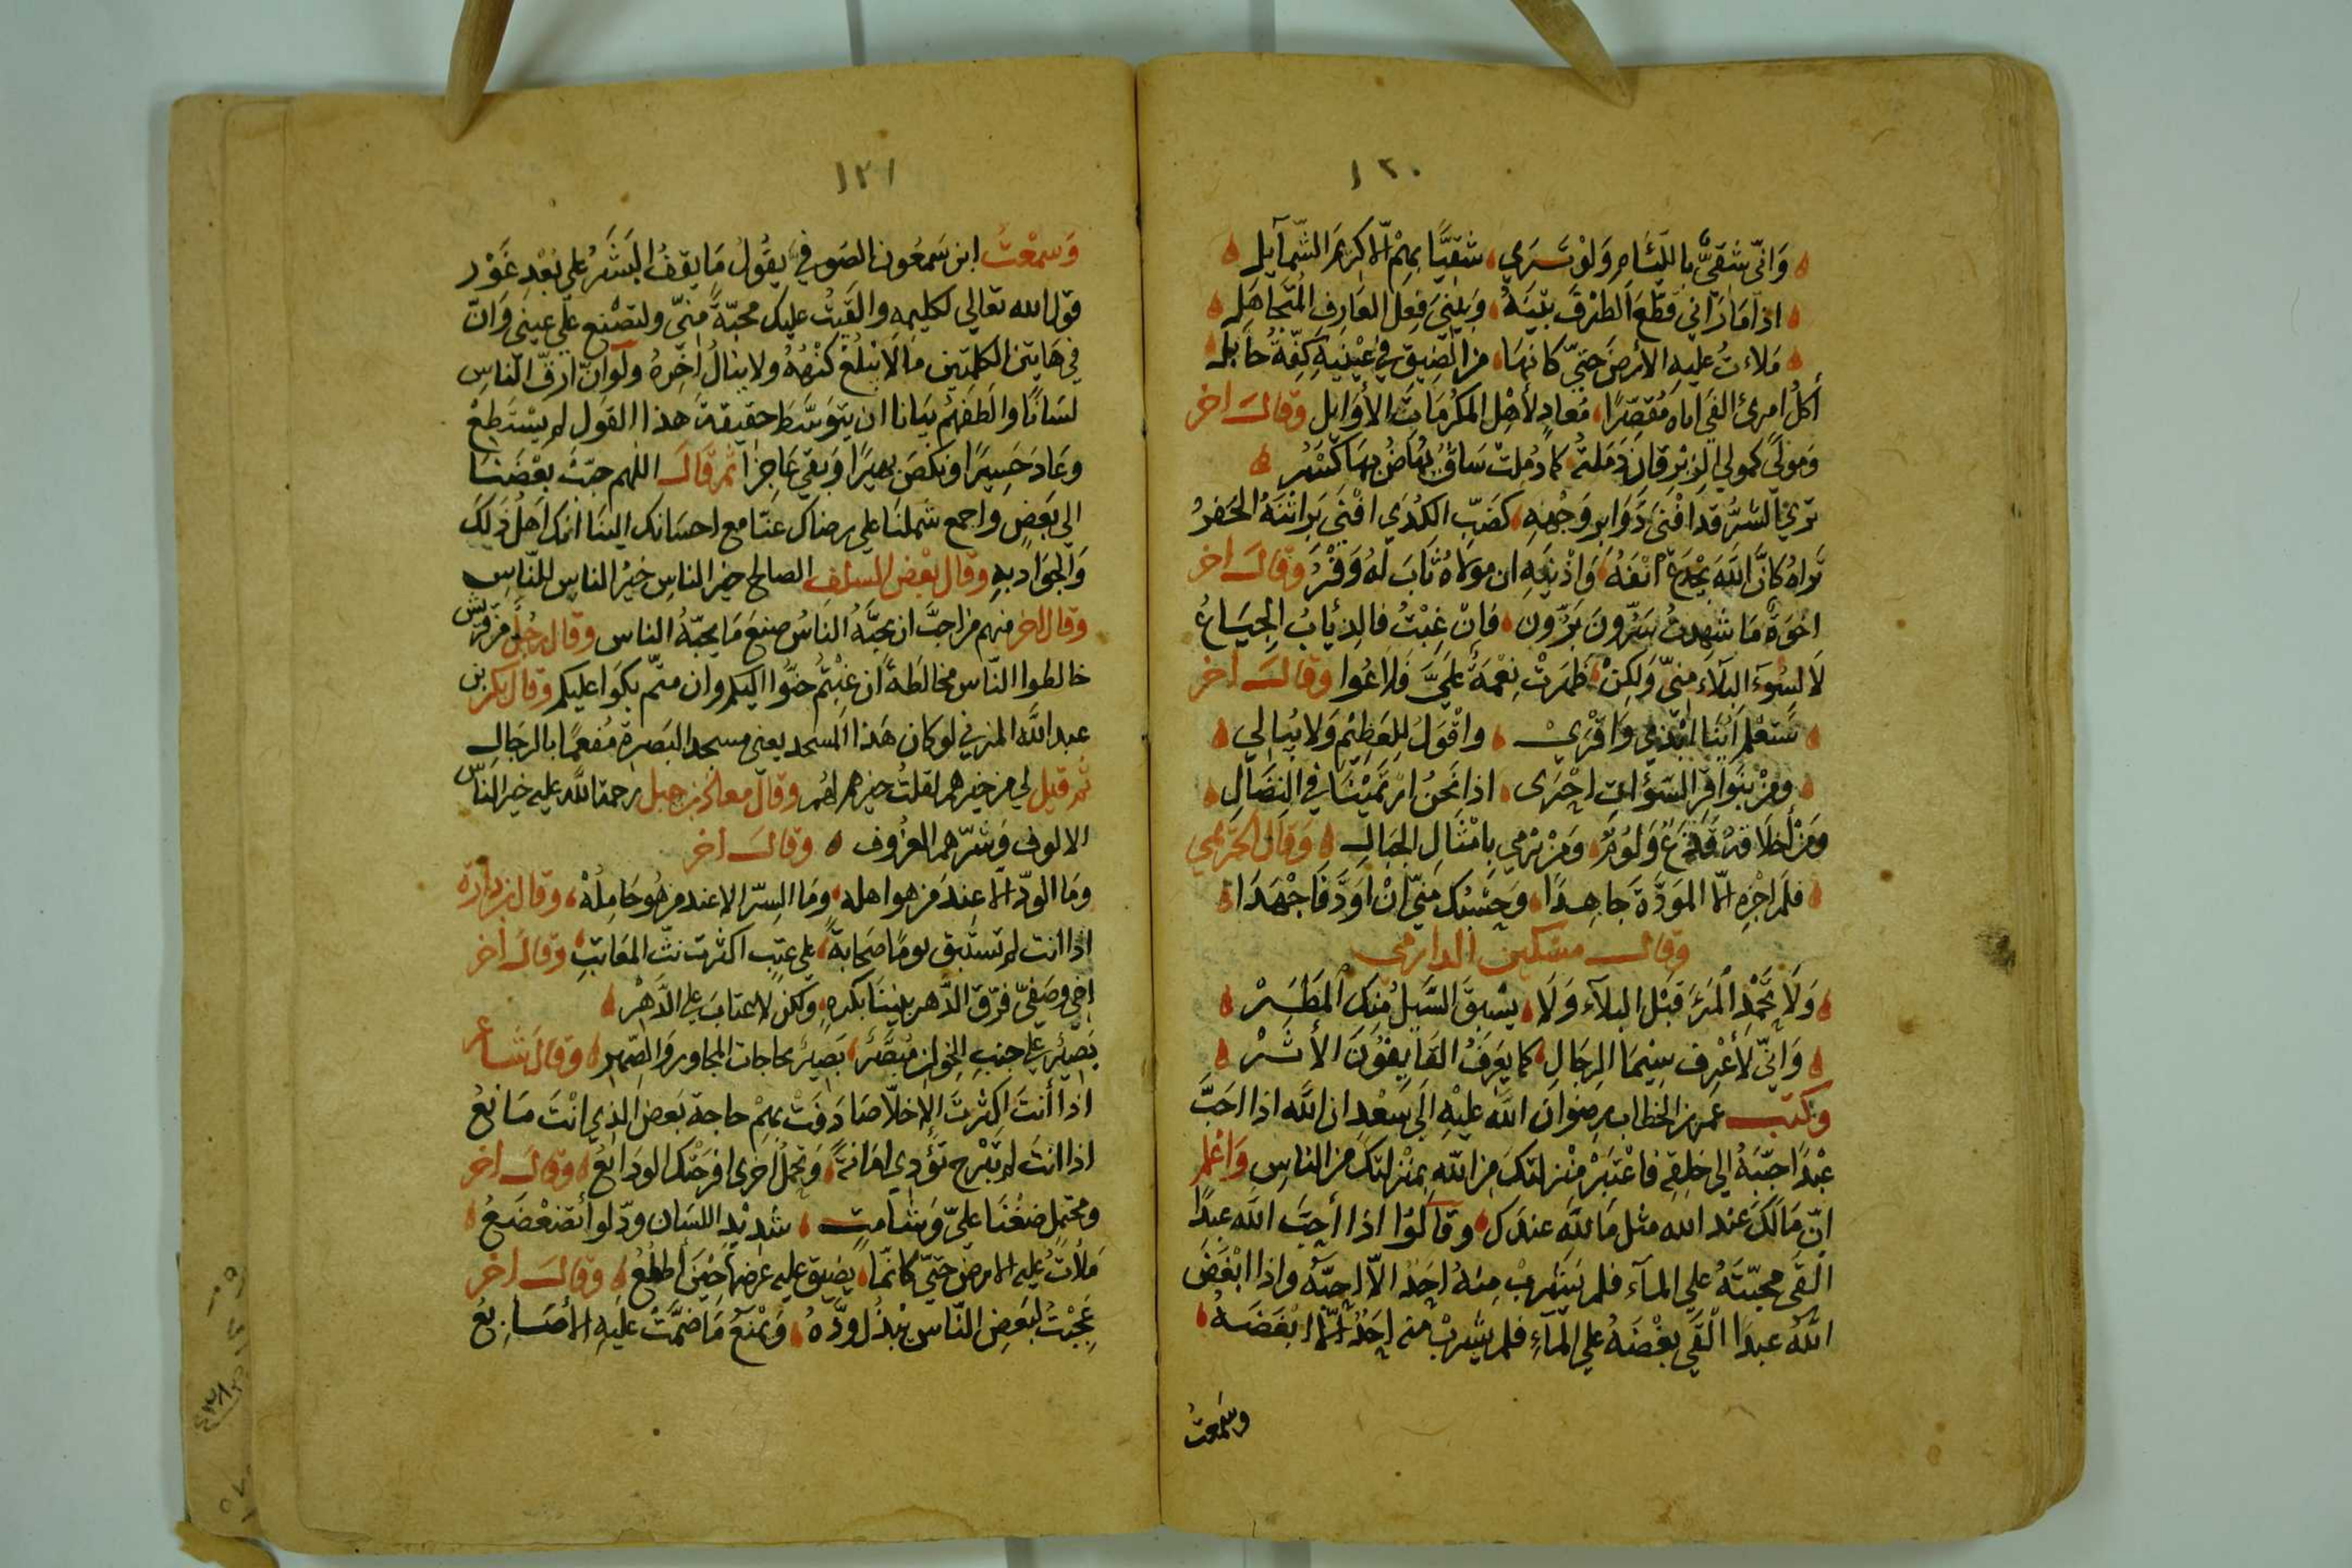 ١٢٠
وَاِنّي شَقيٌّ بِاللّئَامِ وَلَوْ تَسَرَي شَقيًّا بِهِمْ اِلّا كِرَامَ الشّمَآيِل
اذا مَا رَآني قَطّعَ الطَرْفَ بَيْنَهُ وَبَيْنيَ فِعلَ العَارِفِ المُتَجَاهَلِ
مَلاءتُ عليه الارْضَ حَتيّ كانهَا مِن الضِيق في عَيْنَيْهِ كِفّةُ حَابِل
أكُلُ امرئٍ الفَي اباه مُقَصِّرًا مُعادٍ لأهْلِ المكرُمَاتِ الأوَايِل وَقالَ اخر
وَمَولًى كمولي الزبْرقان دَمَلتهُ كما دُمِلتْ سَاقٌ تُهَاضُ بهَا كَسْرُ
تَرَي الشرَّ قد افْنَي دَوَابِر وَجْهِهِ كضَبّ الكُدَي افْنَي بَرَاثنَهُ الحَفرُ
تَراهُ كانَّ اللّهَ يَجْدَعُ انْفَهُ وَاذْنَيهِ ان مولاهُ ثابَ لهُ وَفْرُ وَقَالَ اخر
اخوَةٌ مَا شهِدتُ بَرّونَ بَرّون فاِنْ غِبْتُ فالذِيَابُ الجِيَاعُ
لَا لسُوَء البَلَاء مِنيّ وَلكِنْ ظهَرَتْ نِعْمَةٌ عَلَيَّ فَلاعُوا وَقالَ أخر
ومَنْ اخلاقهُ قَذَعٌ وَلُومٌ وَمَنْ يَرْمي بِامْثَالِ الجبَالِ وَقال الجَرْمي
فلم اجْزهِ الّا المَوَدَّةَ جَاهِدًا وَحَسْبُك مِنيّ انْ اوَدَّ فَاجْهَدَا
وقال مسكين الدارمي
وَلَا تَحْمِدِ المَرْءَ قَبْل البلآء وَلَا يسْبِقَ السَّيلُ مِنك المَطَرْ
وَانيّ لَأعْرِف سِيْمَا الرِجَالِ كما يَعرفُ القَايفُونَ الأثَرْ
وكتب عمر بن الخطاب رضوان اللّه عليْهِ الَي سَعْد ان اللّه اذا احَبَّ
عبْدًا حبّبَهُ الي خَلقِهِ فاعْتبرْ مَنْزلتكَ مِن اللّهِ بمَنْزلتِكَ مَن الناسِ وَاعْلم
انّ مَالَكَ عند الله مثل مَا للّه عندَك وقالوُا اذا أحبَّ اللّه عبدًا
القَي محبّتَهُ علي المآء فلم يَشرَبْ مِنهُ احَدٌ الّا احبّهُ واذا ابْغَضَ
اللّه عبدًا القَي بغْضَهُ علي المآءِ فلم يشربْ منه احَدٌ الّا ابْغَضَهُ
وسَمعتُ
١٢١
وَسمعْتُ ابن سَمعُون الصَوفيّ يقُولُ مَا يقفُ البَشَرُ علي بُعْد غَوْر
قول الله تعالي لكليمِهِ والقَيْتُ عليك محبّةً مِنيّ ولتصْنع علي عينَي وَانّ
في هَاتين الكلمتين مَا لا يُبْلَغُ كنْهُهُ ولا ينالُ آخِرهُ ولو انّ ارقّ الناسِ
لسَانًا والطَفهُمْ بيَانا ان يتوَسّطَ حقيقةَ هذا القَول لم يسْتطِعْ
وعَادَ حَسِيرًا ونكصَ بهيرًا وَبقي عَاجزًا ثمّ قالَ اللهم حبّبْ بعْضَنَا
الي بَعضٍ واجمع شملنَا علي رضاك عنّا مع احسَانك اليْنَا انّك اهلُ ذلِكَ
وَالجَوَاد بهِ وقال بعْض السلف الصالح خير الناسِ خيْرُ الناس للنّاسِ
وقال اخر منهم من احبَّ ان يحبّهُ الناسُ صنعَ مَا يحبّهُ الناس وقال رجُلٌ من قريش
خالطوا النّاس مخالطةً ان غِبْتُم حَنّوا اليكم وان متّم بكوا عليكم وقال بكر بن
عبد اللّه المزني لو كان هَذا المسجد يعني مسجد البَصرة مُفعمًا بالرجالِ
ثم قيل لي من خيرهم لقلتُ خيرهم لهم وقال معاذ بن جبل رحمة اللّه عليه خير الناس
الالوف وَشرّهم العزُوف وقالَ أخر
وَمَا الودّ الّا عِندَ مَن هو اهله ومَا السِرّ الا عند مَن هُو حَامِلُهْ
اذا انت لم تستَبق يومًا صَحابةً علي عتبٍ اكثرت بثّ المعَاتبِ وقال أخر
اخي وصَفيّ فرّق الدَّهر بيننَا بكرهٍ ولكن لا عتابَ علي الدَّهْر
اذا أنتَ اكثرتَ الاِخلّا صَادَفَتْ بهِمْ حاجة بَعض الذِي انْتَ مَانعُ
اذا انتَ لم تَبْرح تؤَدي امَانةً وَتحمِلُ اخرى افرَحَتْك الوَدَايعُ وقالَ أخر
ومحتملٍ ضغْنَا عليّ وَشامتٍ شديْد اللسَان ودّ لو أتضعْضَعُ
مَلأتُ عليه الارضَ حَتيّ كانّمَا يضيق عليه عَرضهَا حَيْنَ أطلعُ وقالَ أخر
عجبْتُ لبَعض النّاس يَبْذُل وُدَّهُ وَيمْنَعُ مَا ضمَّتْ عليَهِ الأصَابِعُ